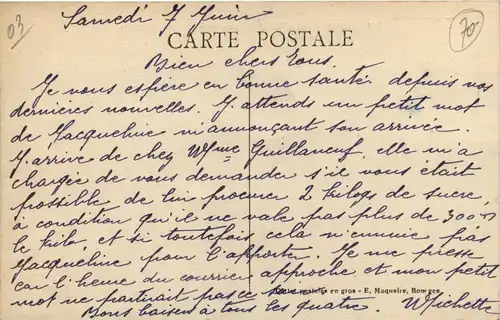 03
Samedi 7 Juin
70-
CARTE POSTALE
Bien chers tous.
Je vous espère en bonne santé depuis vos
dernières nouvelles. J'attends un petit mot
de Jacqueline m'annonçant son arrivée.
J'arrive de chez Mme Guillaneuf, elle m'a
chargée de vous demander s'il vous était
possible de lui procurer 2 kilogs de sucre,
à condition qu'il ne vale pas plus de 300
le kilo, et si toutefois cela n'ennuie pas
Jacqueline pour l'apporter. Je me presse
car l'heure du courrier approche et mon petit
Cartes postales en gros - E. Maquaire, Bourges
mot ne partirait pas ce soir
Bons baisers à tous les quatre. Michette